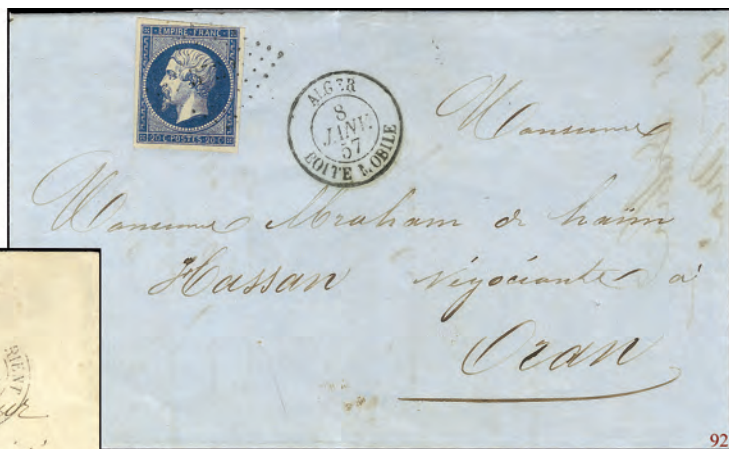 EMPIRE FRANC
20 C POSTES 20 C
ALGER
8
JANV.
57
BOITE MOBILE
Monsieur
Monsieur Abraham de haïm
Hassan Négociante à
Oran
RIENT
92